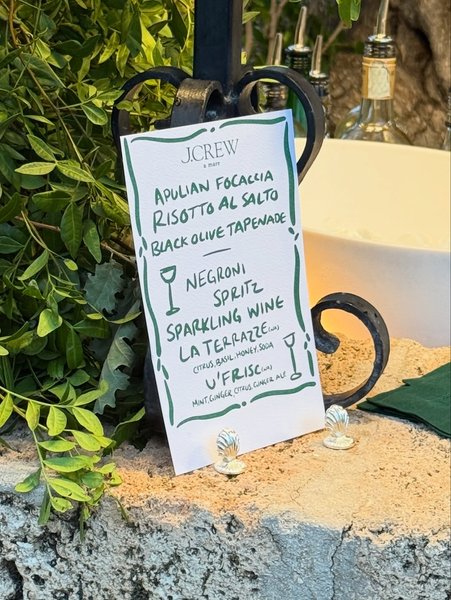 J.CREW
a mare
APULIAN FOCACCIA
RISOTTO AL SALTO
BLACK OLIVE TAPENADE
NEGRONI
SPRITZ
SPARKLING WINE
LA TERRAZZE (NA)
CITRUS, BASIL, HONEY, SODA
U'FRISC (NA)
MINT, GINGER, CITRUS, GINGER ALE